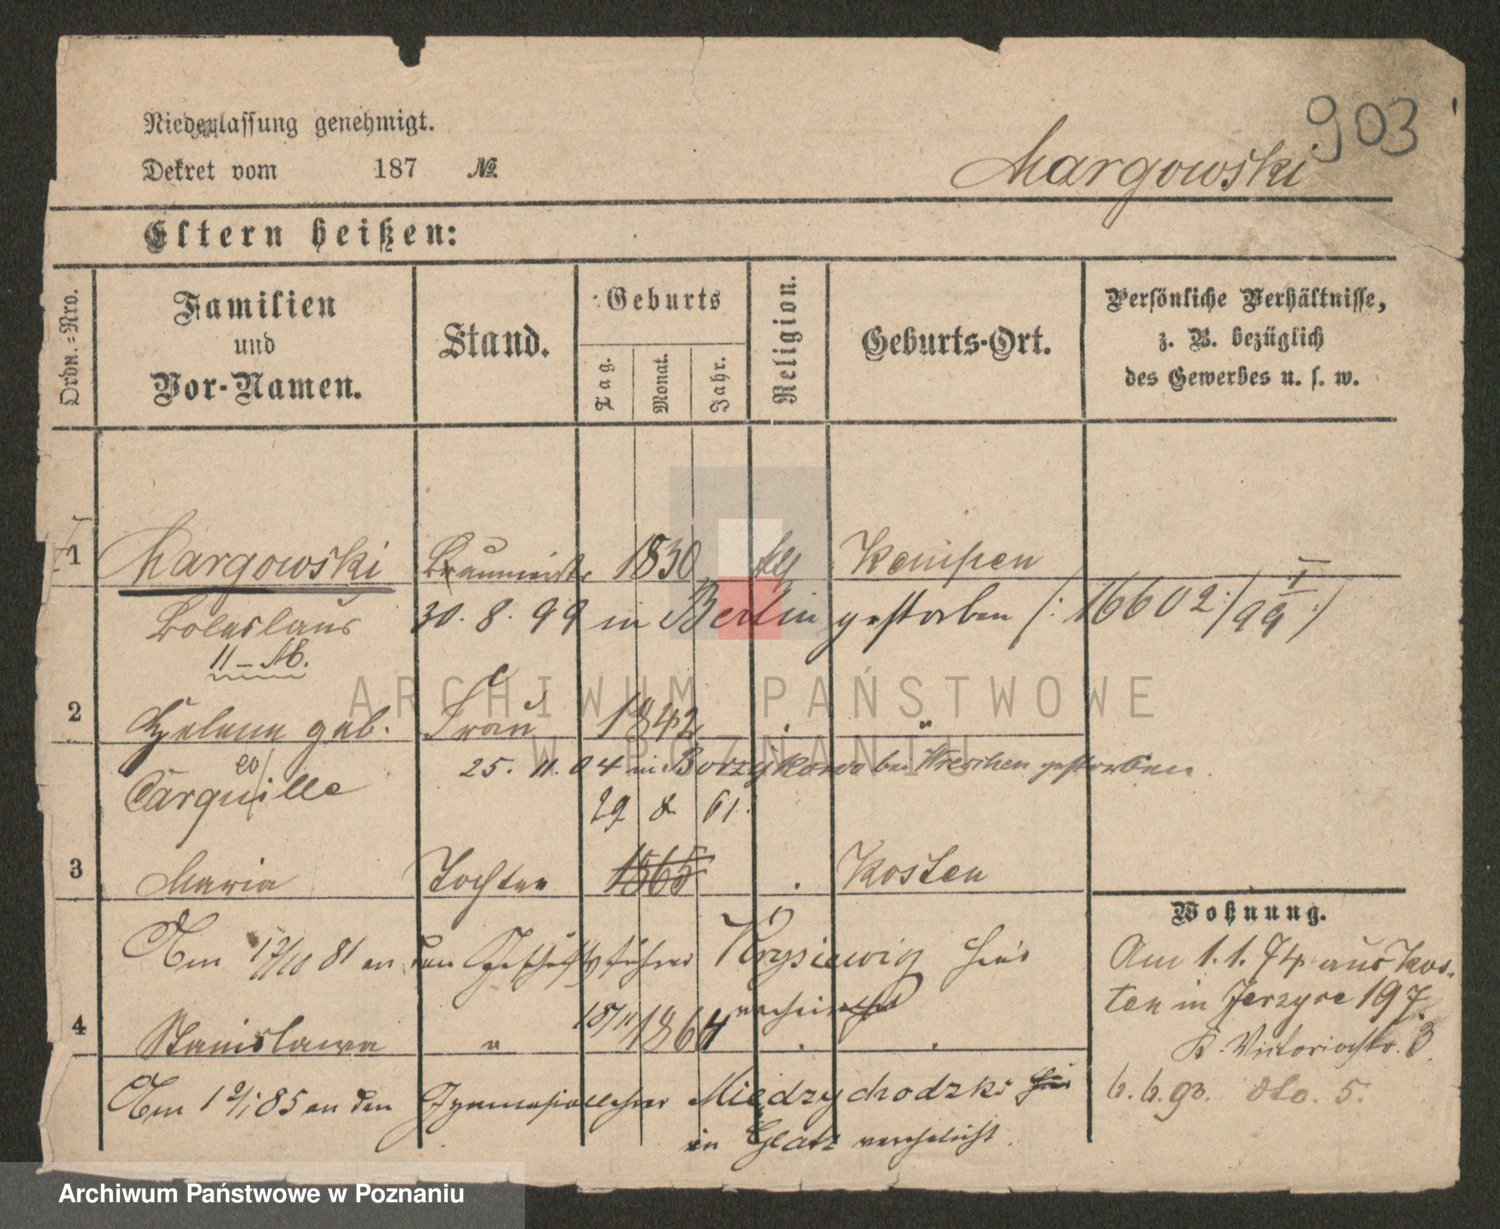 903
Niederlassung genehmigt.
Dekret vom 187 №.
Margowski
Eltern heißen:
Ordn.=Nro.
Familien und Vor-Namen.
Stand.
Geburts
Tag.
Monat.
Jahr.
Religion.
Geburts-Ort.
Persönliche Verhältnisse,
z. B. bezüglich
des Gewerbes u. s. w.
1 Margowski Baumeister 1830 Kempen
Boleslaus 30. 8. 99 in Berlin gestorben /: 16602 /99 :/
2 Helene geb. Frau 1842 . "
Carquille 25. 11. 04 in Borzykowo bei Wreschen gestorben.
29 8 61.
3 Maria Tochter 1865 . Kosten
Am 81 an den Geschäftsführer Krysiewicz hier
verheirathet
4 Stanislawa " 18/11 1864 . .
Am 85 an den Gymnasiallehrer Miedzychodzki hier
in Glatz verehelicht.
Wohnung.
Am 1. 1. 74 aus Kos-
ten in Jerzyce 197.
Kl. Victoriastr. 3.
6. 6. 93. dto. 5.
ARCHIWUM PAŃSTWOWE
W POZNANIU
Archiwum Państwowe w Poznaniu